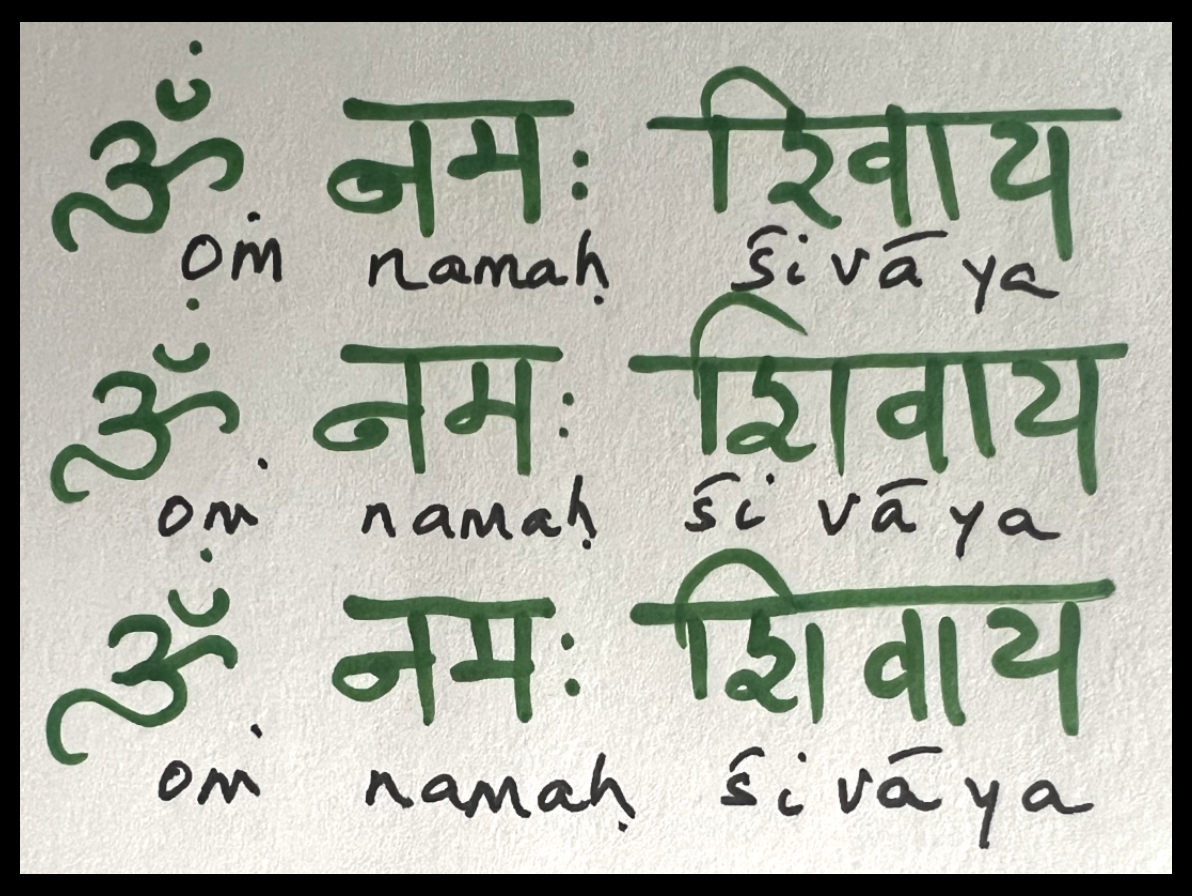 ॐ नमः रिवाय
oṁ namaḥ śi vā ya
ॐ नमः शिवाय
oṁ namaḥ śi vā ya
ॐ नमः शिवाय
oṁ namaḥ śi vā ya